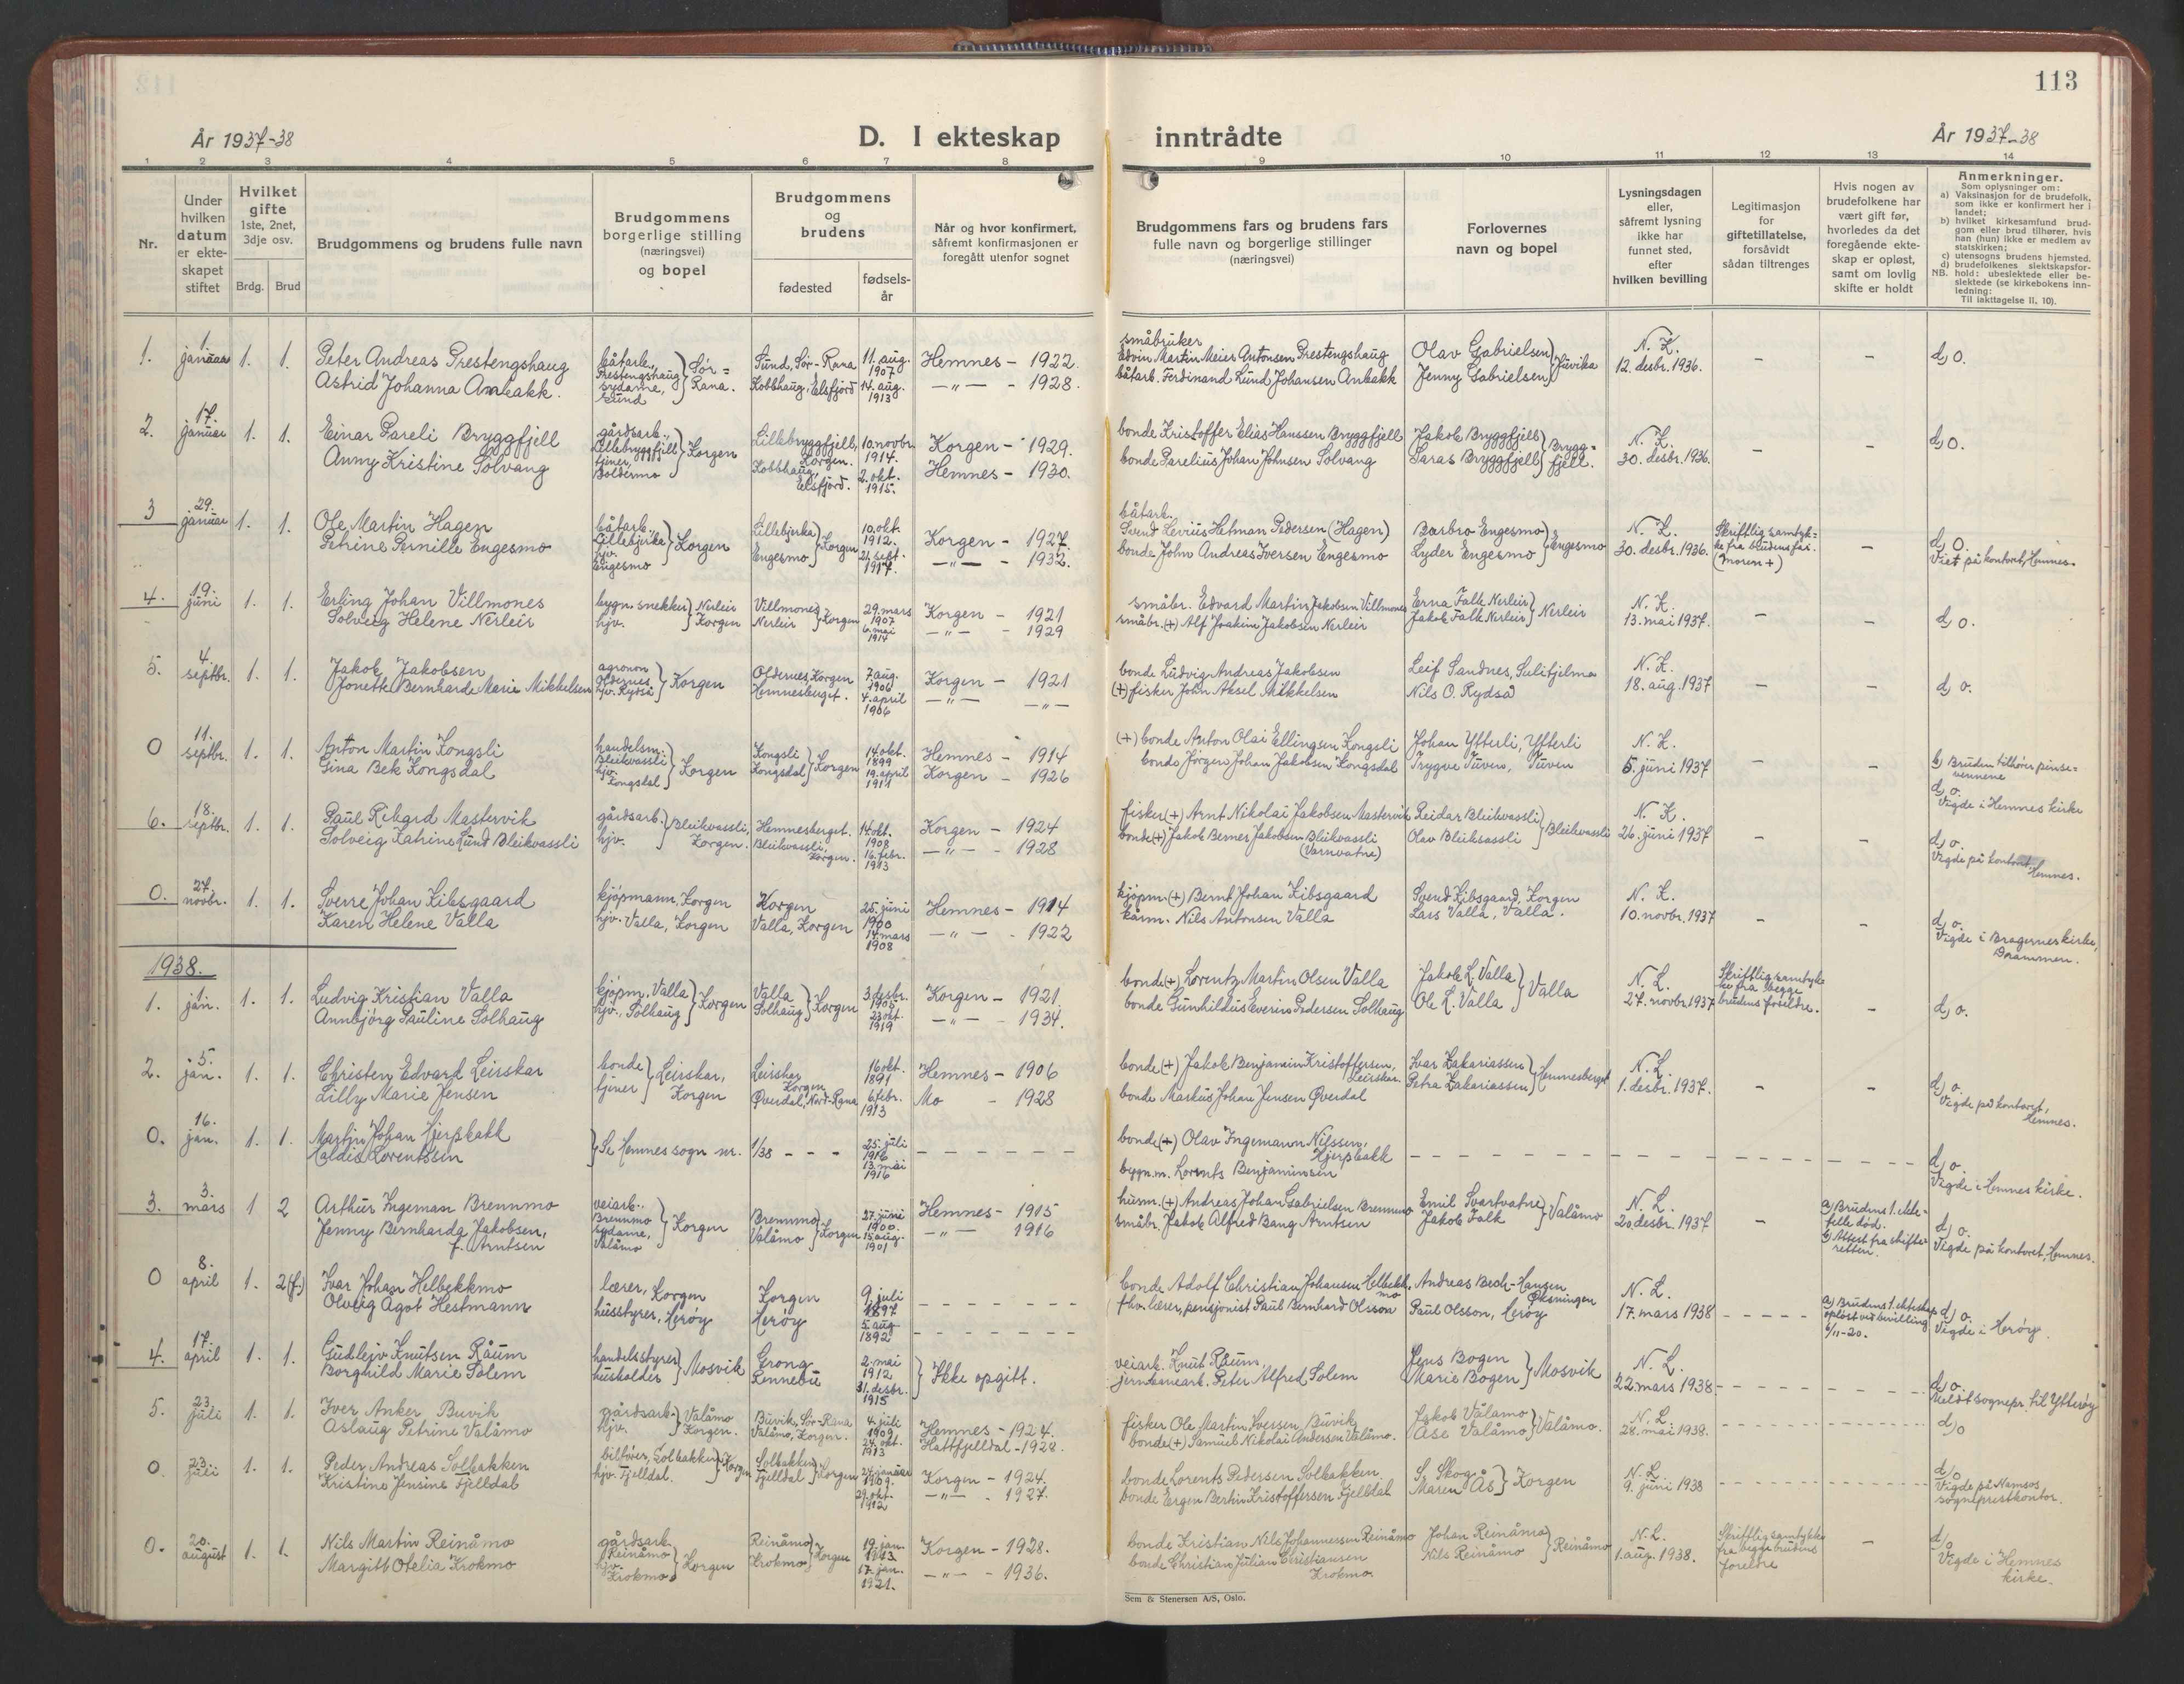 113
År 1937-38
D. I ekteskap inntrådte
År 1937-38
1 2 3 4 5 6 7 8 9 10 11 12 13 14
Nr.
Under hvilken datum er ekteskapet stiftet
Hvilket gifte
1ste, 2net, 3dje osv.
Brdg. Brud
Brudgommens og brudens fulle navn
Brudgommens borgerlige stilling (næringsvei) og bopel
Brudgommens og brudens
fødested
fødselsår
Når og hvor konfirmert, såfremt konfirmasjonen er foregått utenfor sognet
Brudgommens fars og brudens fars fulle navn og borgerlige stillinger (næringsvei)
Forlovernes navn og bopel
Lysningsdagen eller, såfremt lysning ikke har funnet sted, efter hvilken bevilling
Legitimasjon for giftetillatelse, forsåvidt sådan tiltrenges
Hvis nogen av brudefolkene har vært gift før, hvorledes da det foregående ekteskap er opløst, samt om lovlig skifte er holdt
Anmerkninger.
Som oplysninger om:
a) Vaksinasjon for de brudefolk, som ikke er konfirmert her i landet;
b) hvilket kirkesamfund brudgom eller brud tilhører, hvis han (hun) ikke er medlem av statskirken;
c) utensogns brudens hjemsted.
d) brudefolkenes slektskapsforhold: ubeslektede eller beslektede (se kirkebokens innledning:
NB.
Til iakttagelse II, 10).
1. 1. januar 1. 1. Peter Andreas Prestengshaug båtarb., Prestengshaug } Sør-Rana. Sund, Sør-Rana 11. aug. 1907 Hemnes - 1922. småbruker Edvin Martin Meier Antonsen Prestengshaug Olav Gabrielsen } Juvika N. K. 12. desbr. 1936. - - d) o.
Astrid Johanna Anbakk. sydame, Sund Kobbhaug, Elsfjord 14. aug. 1913 —"— - 1928. båtarb. Ferdinand Lund Johansen Anbakk Jenny Gabrielsen
2. 17. januar 1. 1. Einar Pareli Bryggfjell gårdsarb., Lillebryggfjell } Korgen Lillebryggfjell, Korgen. 10. novbr. 1914. Korgen - 1929. bonde Kristoffer Elias Hanssen Bryggfjell Jakob Bryggfjell } Bryggfjell. N. K. 30. desbr. 1936. - - d) o.
Anny Kristine Solvang tjener, Boldermo Kobbhaug, Elsfjord. 2. okt. 1915. Hemnes - 1930. bonde Parelius Johan Johnsen Solvang Saras Bryggfjell
3 29. januar 1. 1. Ole Martin Hagen båtarb., Lillebjerka } Korgen Lillebjerka } Korgen 10. okt. 1912. Korgen - 1927. båtarb. Svend Levius Hetman Pedersen (Hagen) Barbro Engesmo } Engesmo N. L. 30. desbr. 1936. Skriftlig samtykke fra brudens far. (Moren +) - d) O. Viet på kontoret, Hemnes.
Petrine Pernille Engesmo hjv. Engesmo Engesmo 21. sept. 1917. —"— - 1932. bonde John Andreas Iversen Engesmo Lyder Engesmo
4. 19. juni 1. 1. Erling Johan Villmones bygn. snekker } Nerleir Korgen Villmones } Korgen 29. mars 1907 Korgen - 1921 småbr. Edvard Martin Jakobsen Villmones Erna Falk Nerleir } Nerleir N. K. 13. mai 1937. - - d) o.
Solveig Helene Nerleir hjv. Nerleir 6. mai 1914 —"— - 1929 småbr. (+) Alf Joakim Jakobsen Nerleir Jakob Falk Nerleir
5. 4. septbr. 1. 1. Jakob Jakobsen agronom Oldernes } Korgen Oldernes, Korgen 7. aug. 1906 Korgen - 1921 bonde Ludvig Andreas Jakobsen Leif Sandnes, Sulitjelma N. K. 18. aug. 1937 - - d) o.
Jonette Bernharde Marie Mikkelsen hjv. Rydså Hemnesberget. 4. april 1906 —"— —"— (+) fisker John Aksel Mikkelsen Nils O. Rydså
0 11. septbr. 1. 1. Anton Martin Kongsli handelsm. Bleikvassli } Korgen Kongsli } Korgen 14. okt. 1899 Hemnes - 1914 (+) bonde Anton Olai Ellingsen Kongsli Johan Ytterli, Ytterli N. K. 5. juni 1937 - - b) Bruden tilhører pinsevennene d) o. Vigde i Hemnes kirke
Gina Bek Kongsdal hjv. Kongsdal Kongsdal 19. april 1911 Korgen - 1926 bonde Jørgen Johan Jakobsen Kongsdal Trygve Tuven, Tuven
6. 18. septbr. 1. 1. Paul Rikard Mastervik gårdsarb. } Bleikvassli, Korgen. Hemnesberget. 14. okt. 1908 Korgen - 1924 fisker (+) Arnt Nikolai Jakobsen Mastervik Reidar Bleikvassli } Bleikvassli N. K. 26. juni 1937 - - d) o. Vigde på kontoret Hemnes.
Solveig Katrine Lund Bleikvassli hjv. Bleikvassli, Korgen. 16. febr. 1913 —"— - 1928 bonde (+) Jakob Berner Jakobsen Bleikvassli (Varnvatne) Olav Bleikvassli
0. 27. novbr. 1. 1. Sverre Johan Kibsgaard kjøpmann, Korgen Korgen 25. juni 1900 Hemnes - 1914 kjøpm. (+) Bernt Johan Kibsgaard Svend Kibsgaard, Korgen N. K. 10. novbr. 1937 - - d) o. Vigde i Bragernes kirke, Drammen.
Karen Helene Valla hjv. Valla, Korgen Valla, Korgen 14. mars 1908 —"— - 1922 Nils Antonsen Valla Lars Valla, Valla.
1938.
1. 1. jan. 1. 1. Ludvig Kristian Valla kjøpm., Valla } Korgen Valla } Korgen 3. 1905 Korgen - 1921. bonde (+) Lorentz Martin Olsen Valla Jakob L. Valla } Valla N. L. 27. novbr. 1937 Skriftlig samtykke fra begge brudens foreldre. - d) o.
Annbjørg Pauline Solhaug hjv., Solhaug Solhaug 23. okt. 1919 —"— - 1934. bonde Gunhildus Everin Pedersen Solhaug Ole L. Valla
2. 5. jan. 1. 1. Christen Edvard Leirskar bonde } Leirskar, Korgen Leirskar, Korgen 16. okt. 1891 Hemnes - 1906 bonde (+) Jakob Benjamin Kristoffersen, Leirskar. Ivar Zakariassen } Hemnesberget N. L. 1. desbr. 1937. - - d) o. Vigde på kontoret, Hemnes.
Lilly Marie Jensen tjener Øverdal, Nord-Rana 6. febr. 1913 Mo - 1928 bonde Markus Johan Jensen Øverdal Petra Zakariassen
0. 16. jan. 1. 1. Martin Johan Hjerpbakk } Se Hemnes sogn nr. 1/38 - - - 25. juli 1916 - - - bonde (+) Olav Ingemann Nilssen, Hjerpbakk - - - d) o. Vigde i Hemnes kirke.
Haldis Lorentssen 13. mai 1916 bygn.m. Lorents Benjaminsen
3. 3. mars 1 2 Arthur Ingeman Brennmo veiarb., Brennmo } Korgen Brennmo } Korgen 27. juni 1900. Hemnes - 1915 husm. (+) Andreas Johan Gabrielsen Brennmo Emil Svartvatne } Valåmo N. L. 20. desbr. 1937 - a) Brudens 1. ektefelle død. b) Attest fra skifteretten. d) o. Vigde på kontoret, Hemnes.
Jenny Bernharda Jakobsen, f. Arntsen sydame, Valåmo Valåmo 15. aug. 1901 —"— 1916 småbr. Jakob Alfred Bang Arntsen Jakob Falk
0 8. april 1. 2(f.) Ivar Johan Helbekkmo lærer, Korgen Korgen 9. juli 1897 - - - bonde Adolf Christian Johansen Helbekkmo Andreas Bech-Hansen, Øksningen N. L. 17. mars 1938 - - - a) Brudens 1. ekteskap opløst ved bevilling 6/11-20. d) o. Vigde i Herøy.
Olveig Agot Hestmann husstyrer, Herøy Herøy 5. aug. 1892 - - - fhv. lærer, pensjonist Paul Bernhard Olsson Paul Olsson, Herøy
4. 17. april 1. 1. Gudlejv Knutsen Raum handelsstyrer } Mosvik Grong 2. mai 1912 } Ikke opgitt. veiarb. Knut Raum, Jens Bogen } Mosvik N. L. 22. mars 1938 - - - d) o. Meldt sognepr. til Ytterøy
Borghild Marie Solem husholder Rennebu 31. desbr. 1915 jernbanearb. Peter Alfred Solem Marie Bogen
5. 23. juli 1. 1. Iver Anker Buvik gårdsarb. } Valåmo Korgen. Buvik, Sør-Rana 4. juli 1909 Hemnes - 1924. fisker Ole Martin Iversen Buvik Jakob Valåmo } Valåmo. N. L. 28. mai 1938. - - - d) o
Aslaug Petrine Valåmo hjv. Valåmo, Korgen. 24. okt. 1913 Hattfjelldal - 1928. bonde (+) Samuel Nikolai Andersen Valåmo. Åse Valåmo
0. 23. juli 1. 1. Peder Andreas Solbakken bilfører, Solbakken } Korgen Solbakken } Korgen 27. januar 1909. Korgen - 1924. bonde Lorents Pedersen Solbakken S. Skog } Korgen N. L. 9. juni 1938 - - - d) o Vigde på Namsos sogneprestkontor.
Kristine Jensine Fjelldal hjv. Fjelldal. Fjelldal 29. okt. 1912 —"— - 1927. bonde Ergen Bertin Kristoffersen Fjelldal Maren Ås
0. 20. august 1. 1. Nils Martin Reinåmo gårdsarb. Reinåmo } Korgen Reinåmo } Korgen 19. jan. 1913. Korgen - 1928. bonde Kristian Nils Johannessen Reinåmo Johan Reinåmo } Reinåmo N. L. 1. aug. 1938. Skriftlig samtykke fra begge brudens foreldre - d) o Vigde i Hemnes kirke.
Margitt Otelia Krokmo hjv. Krokmo Krokmo 17. jan. 1921. —"— - 1936. bonde Christian Julian Christiansen Krokmo. Nils Reinåmo
Sem & Stenersen A/S, Oslo.